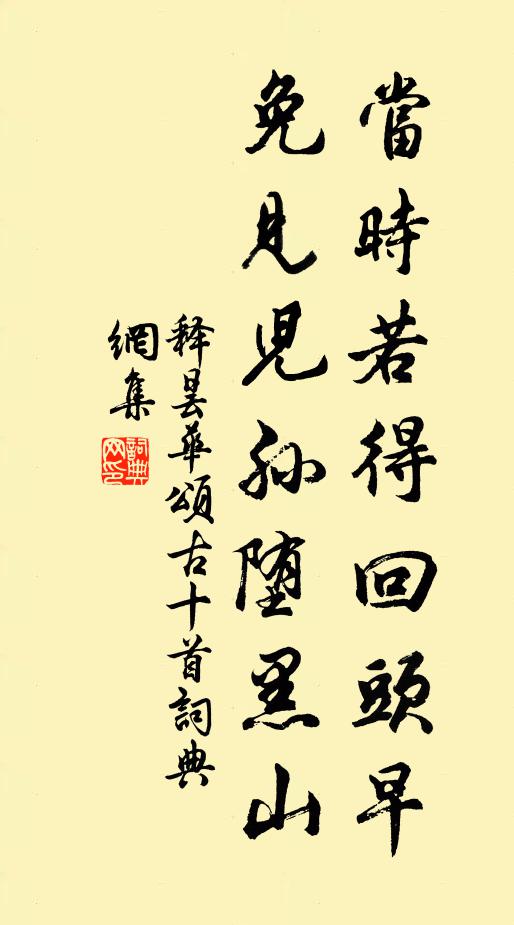 當時若得回頭早
免見児孫堕黑山
释曇華頌古十首詞典
網集
詞典網印